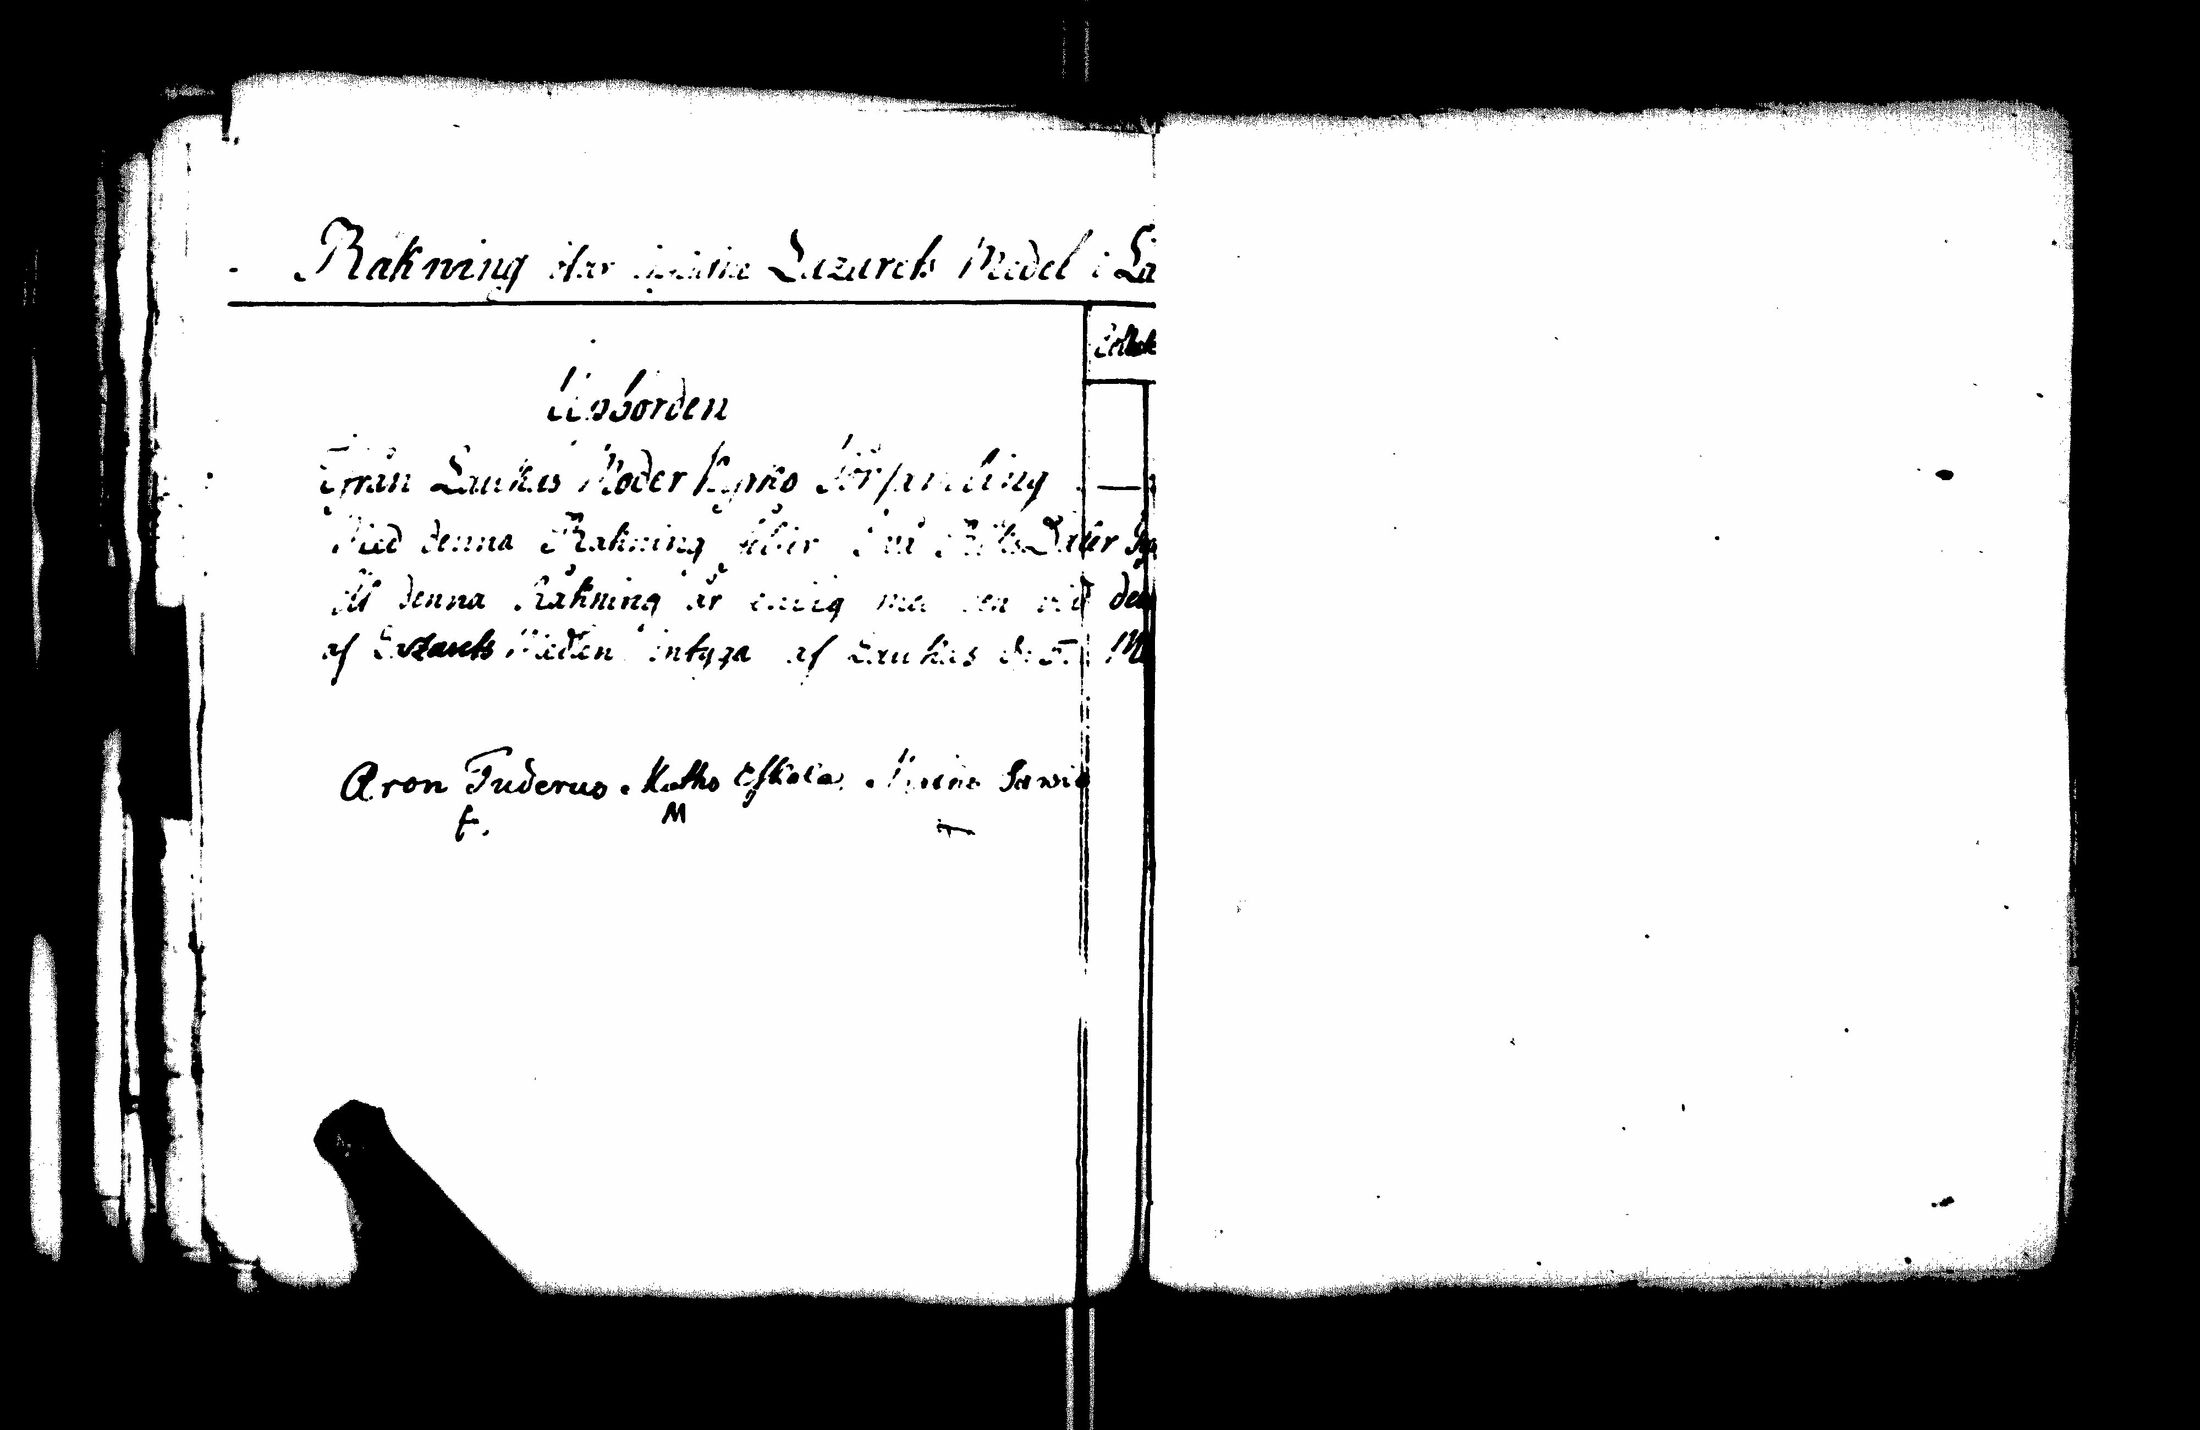 Räkning öfver Lazarets Medel i La
Collek
Upborden
Ifrån Laukas Moder Kyrko Församling
Med denna Räkning följer Två
At denna Räkning är enlig med den vid den
af Lazarets Medlen intyga af Laukas d. 5. M
Aron Tuderus Matho Eskola Sawio
M